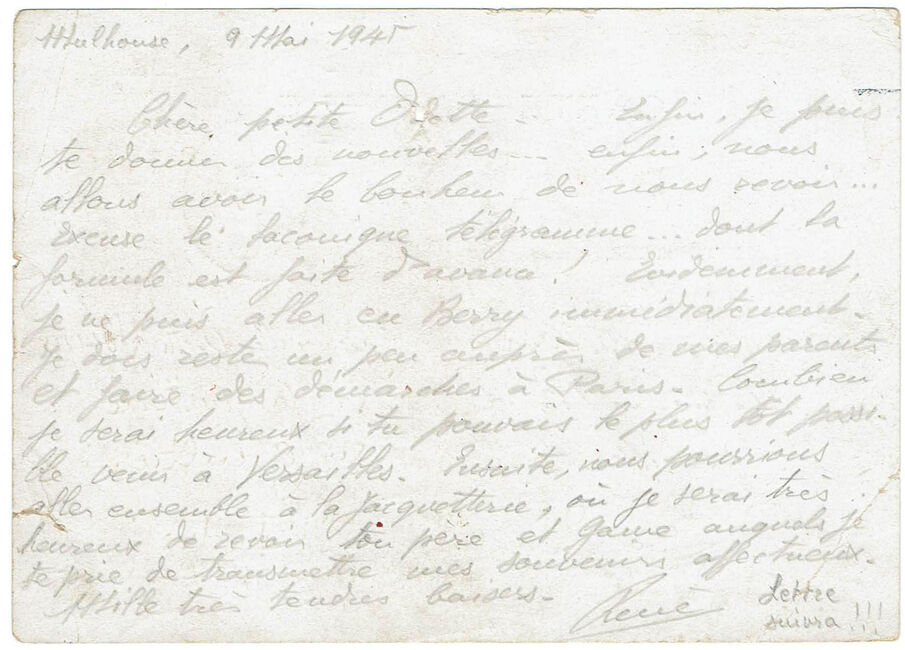 Mulhouse, 9 Mai 1945
Chère petite Odette... Enfin, je puis
te donner des nouvelles... enfin, nous
allons avoir le bonheur de nous revoir...
Excuse le laconique télégramme... dont la
formule est faite d'avance! Evidemment,
je ne puis aller en Berry immédiatement.
Je dois rester un peu auprès de mes parents
et faire des démarches à Paris. Combien
je serai heureux si tu pouvais le plus tôt possi-
ble venir à Versailles. Ensuite, nous pourrions
aller ensemble à la Jacquetterie, où je serai très
heureux de revoir ton père et auxquels je
te prie de transmettre mes souvenirs affectueux.
Mille très tendres baisers.
René
Lettre
suivra!!!